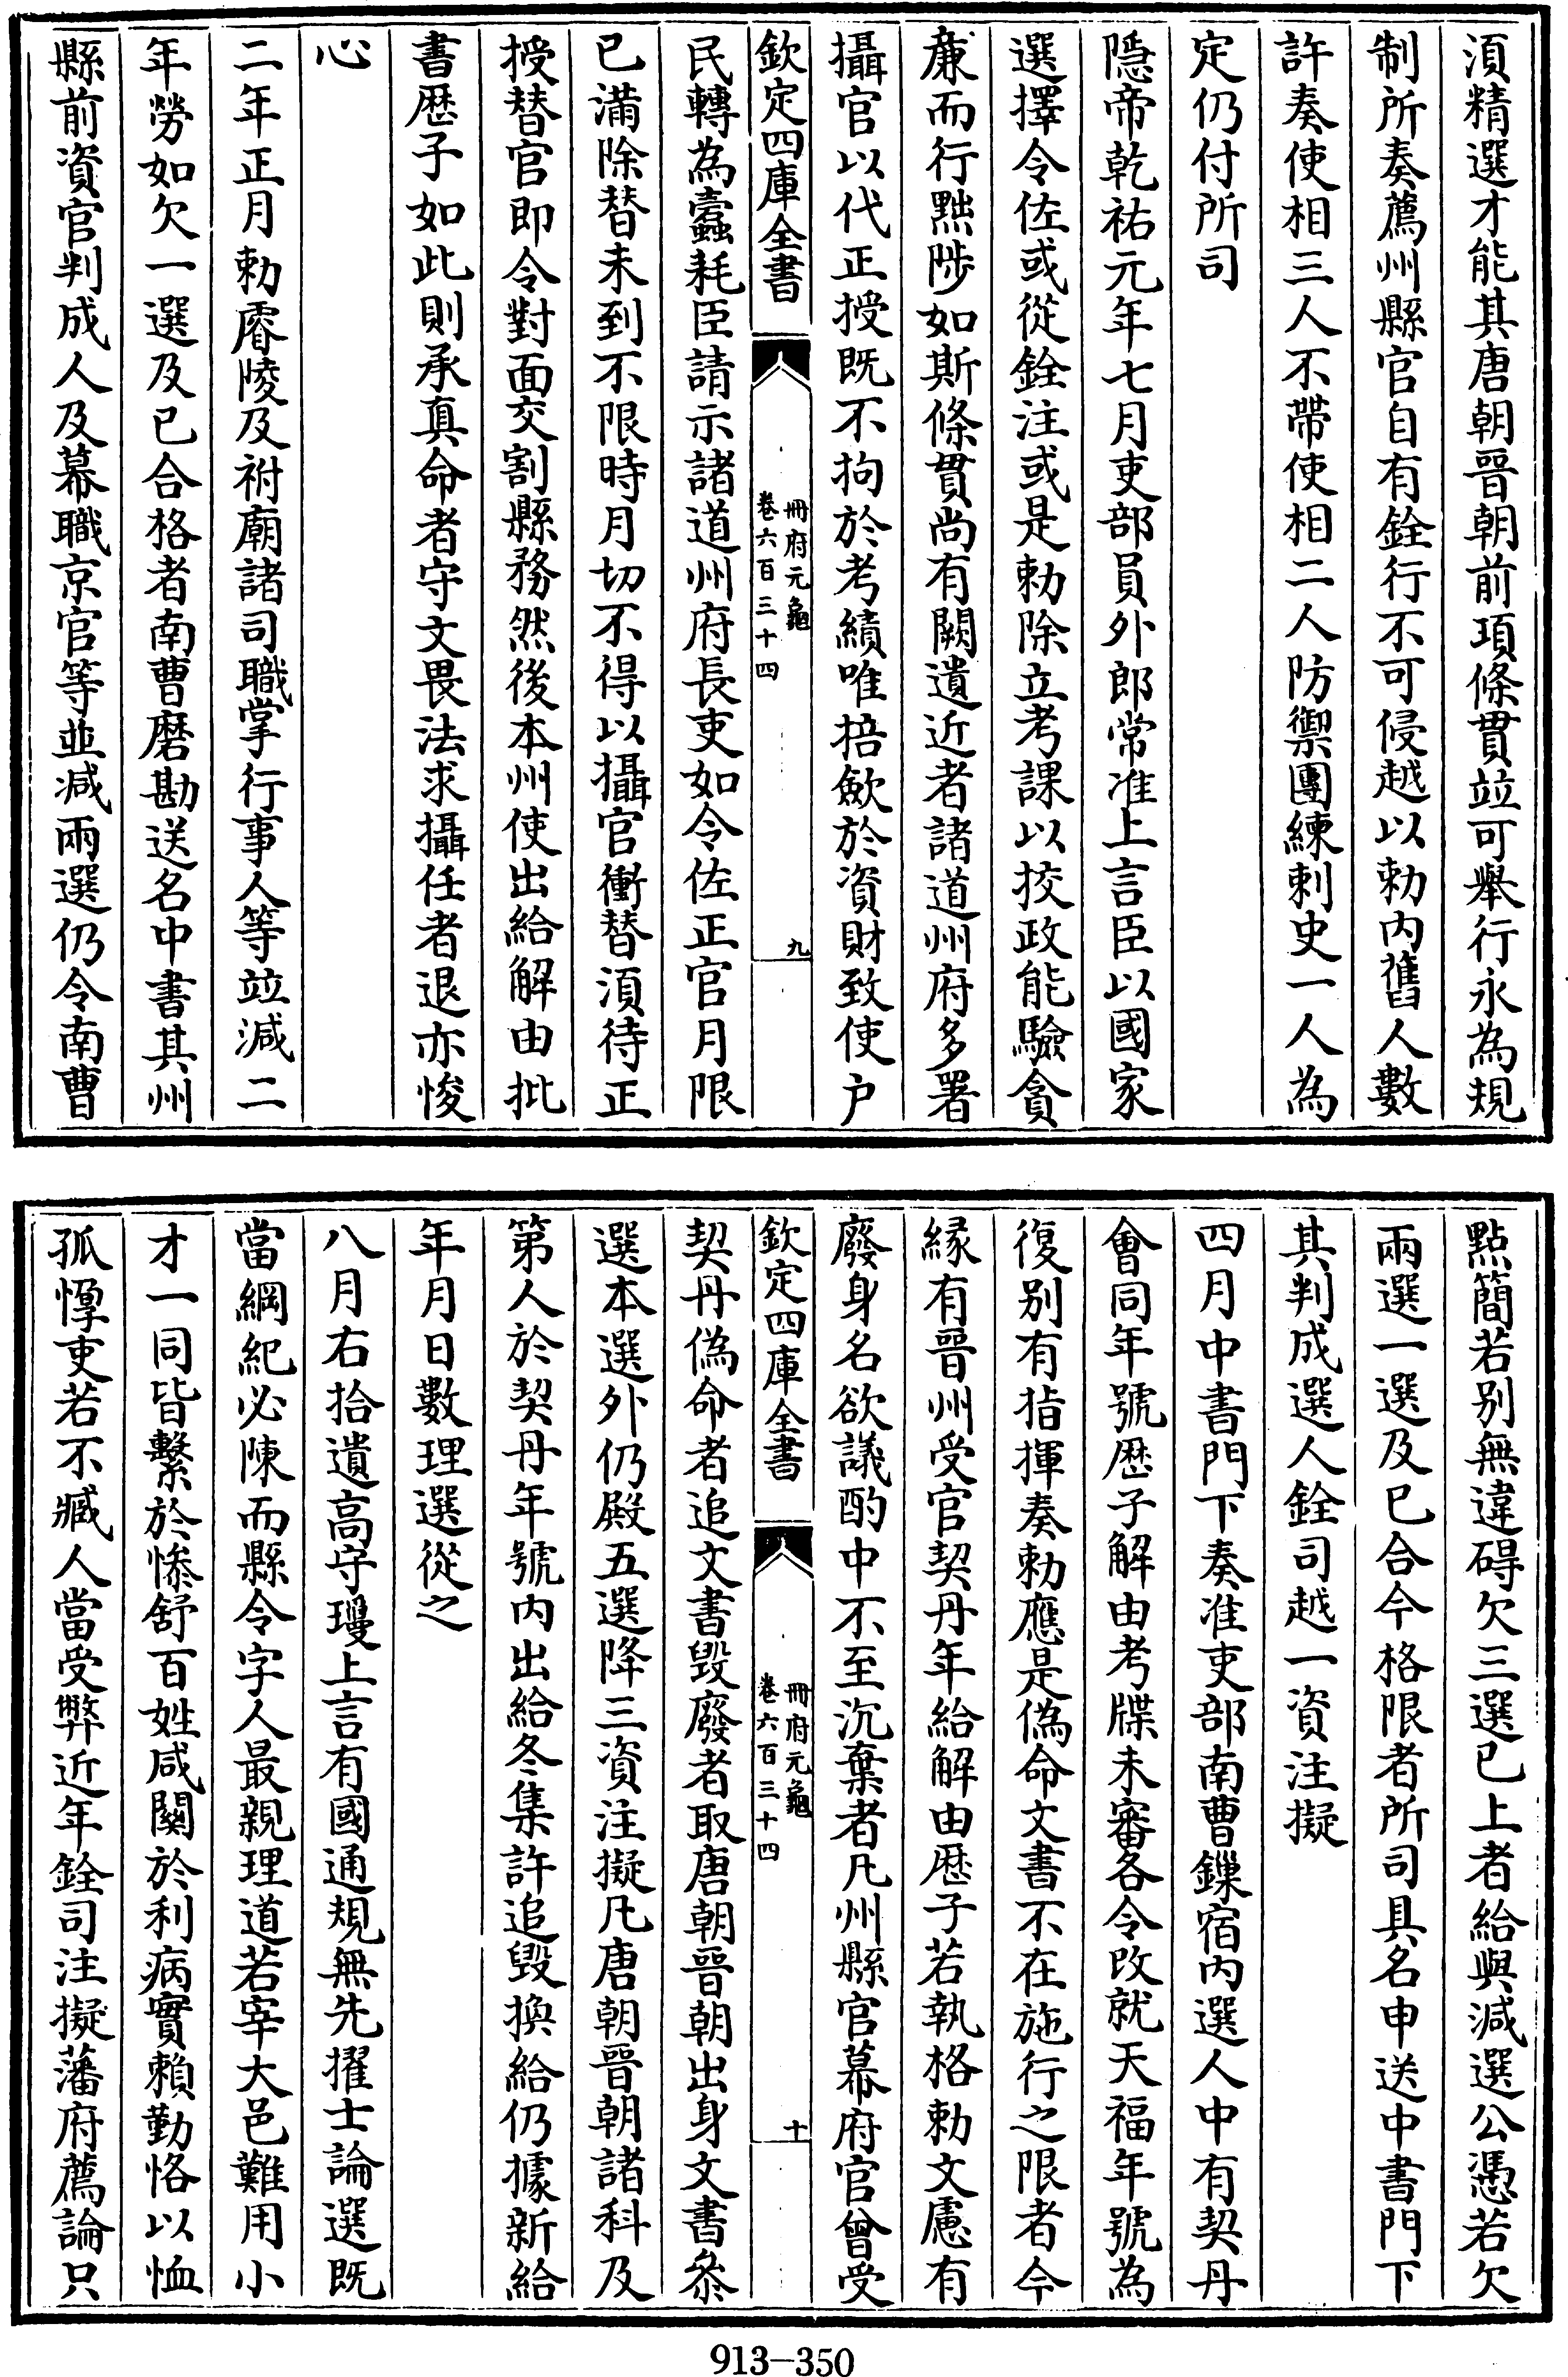 湏精選才能其唐朝晉朝前項條貫竝可舉行永為規
制所奏薦州縣官自有銓行不可侵越以勅内舊人數
許奏使相三人不帶使相二人防禦團練刺史一人為
定仍付所司
隱帝乾祐元年七月吏部員外郎常准上言臣以國家
選擇令佐或從銓注或是勅除立考課以挍政能驗貪
廉而行黜陟如斯條貫尚有闕遺近者諸道州府多署
攝官以代正授既不拘於考績唯掊歛於資財致使户
欽定四庫全書
冊府元龜
卷六百三十四
九
民轉為蠹耗臣請示諸道州府長吏如令佐正官月限
已滿除替未到不限時月切不得以攝官衝替湏待正
授替官即令對面交割縣務然後本州使出給解由批
書歷子如此則承真命者守文畏法求攝任者退亦悛
心
二年正月勅睿陵及祔廟諸司職掌行事人等竝減二
年勞如欠一選及已合格者南曹磨勘送名中書其州
縣前資官判成人及幕職京官等並減兩選仍令南曹
點簡若别無違碍欠三選已上者給與減選公憑若欠
兩選一選及已合今格限者所司具名申送中書門下
其判成選人銓司越一資注擬
四月中書門下奏准吏部南曹鏁宿内選人中有契丹
會同年號歷子解由考牒未審各令改就天福年號為
復别有指揮奏勅應是偽命文書不在施行之限者今
緣有晉州受官契丹年給解由歷子若執格勅文慮有
廢身名欲議酌中不至沉棄者凡州縣官幕府官曾受
欽定四庫全書
冊府元龜
卷六百三十四
十
契丹偽命者追文書毀廢者取唐朝晉朝出身文書叅
選本選外仍殿五選降三資注擬凡唐朝晉朝諸科及
第人於契丹年號内出給冬集許追毀換給仍據新給
年月日數理選從之
八月右拾遺高守瓊上言有國通規無先擢士論選既
當綱紀必陳而縣令字人最親理道若宰大邑難用小
才一同皆繫於慘舒百姓咸關於利病實賴勤恪以恤
孤惸吏若不臧人當受弊近年銓司注擬藩府薦論只
913-350